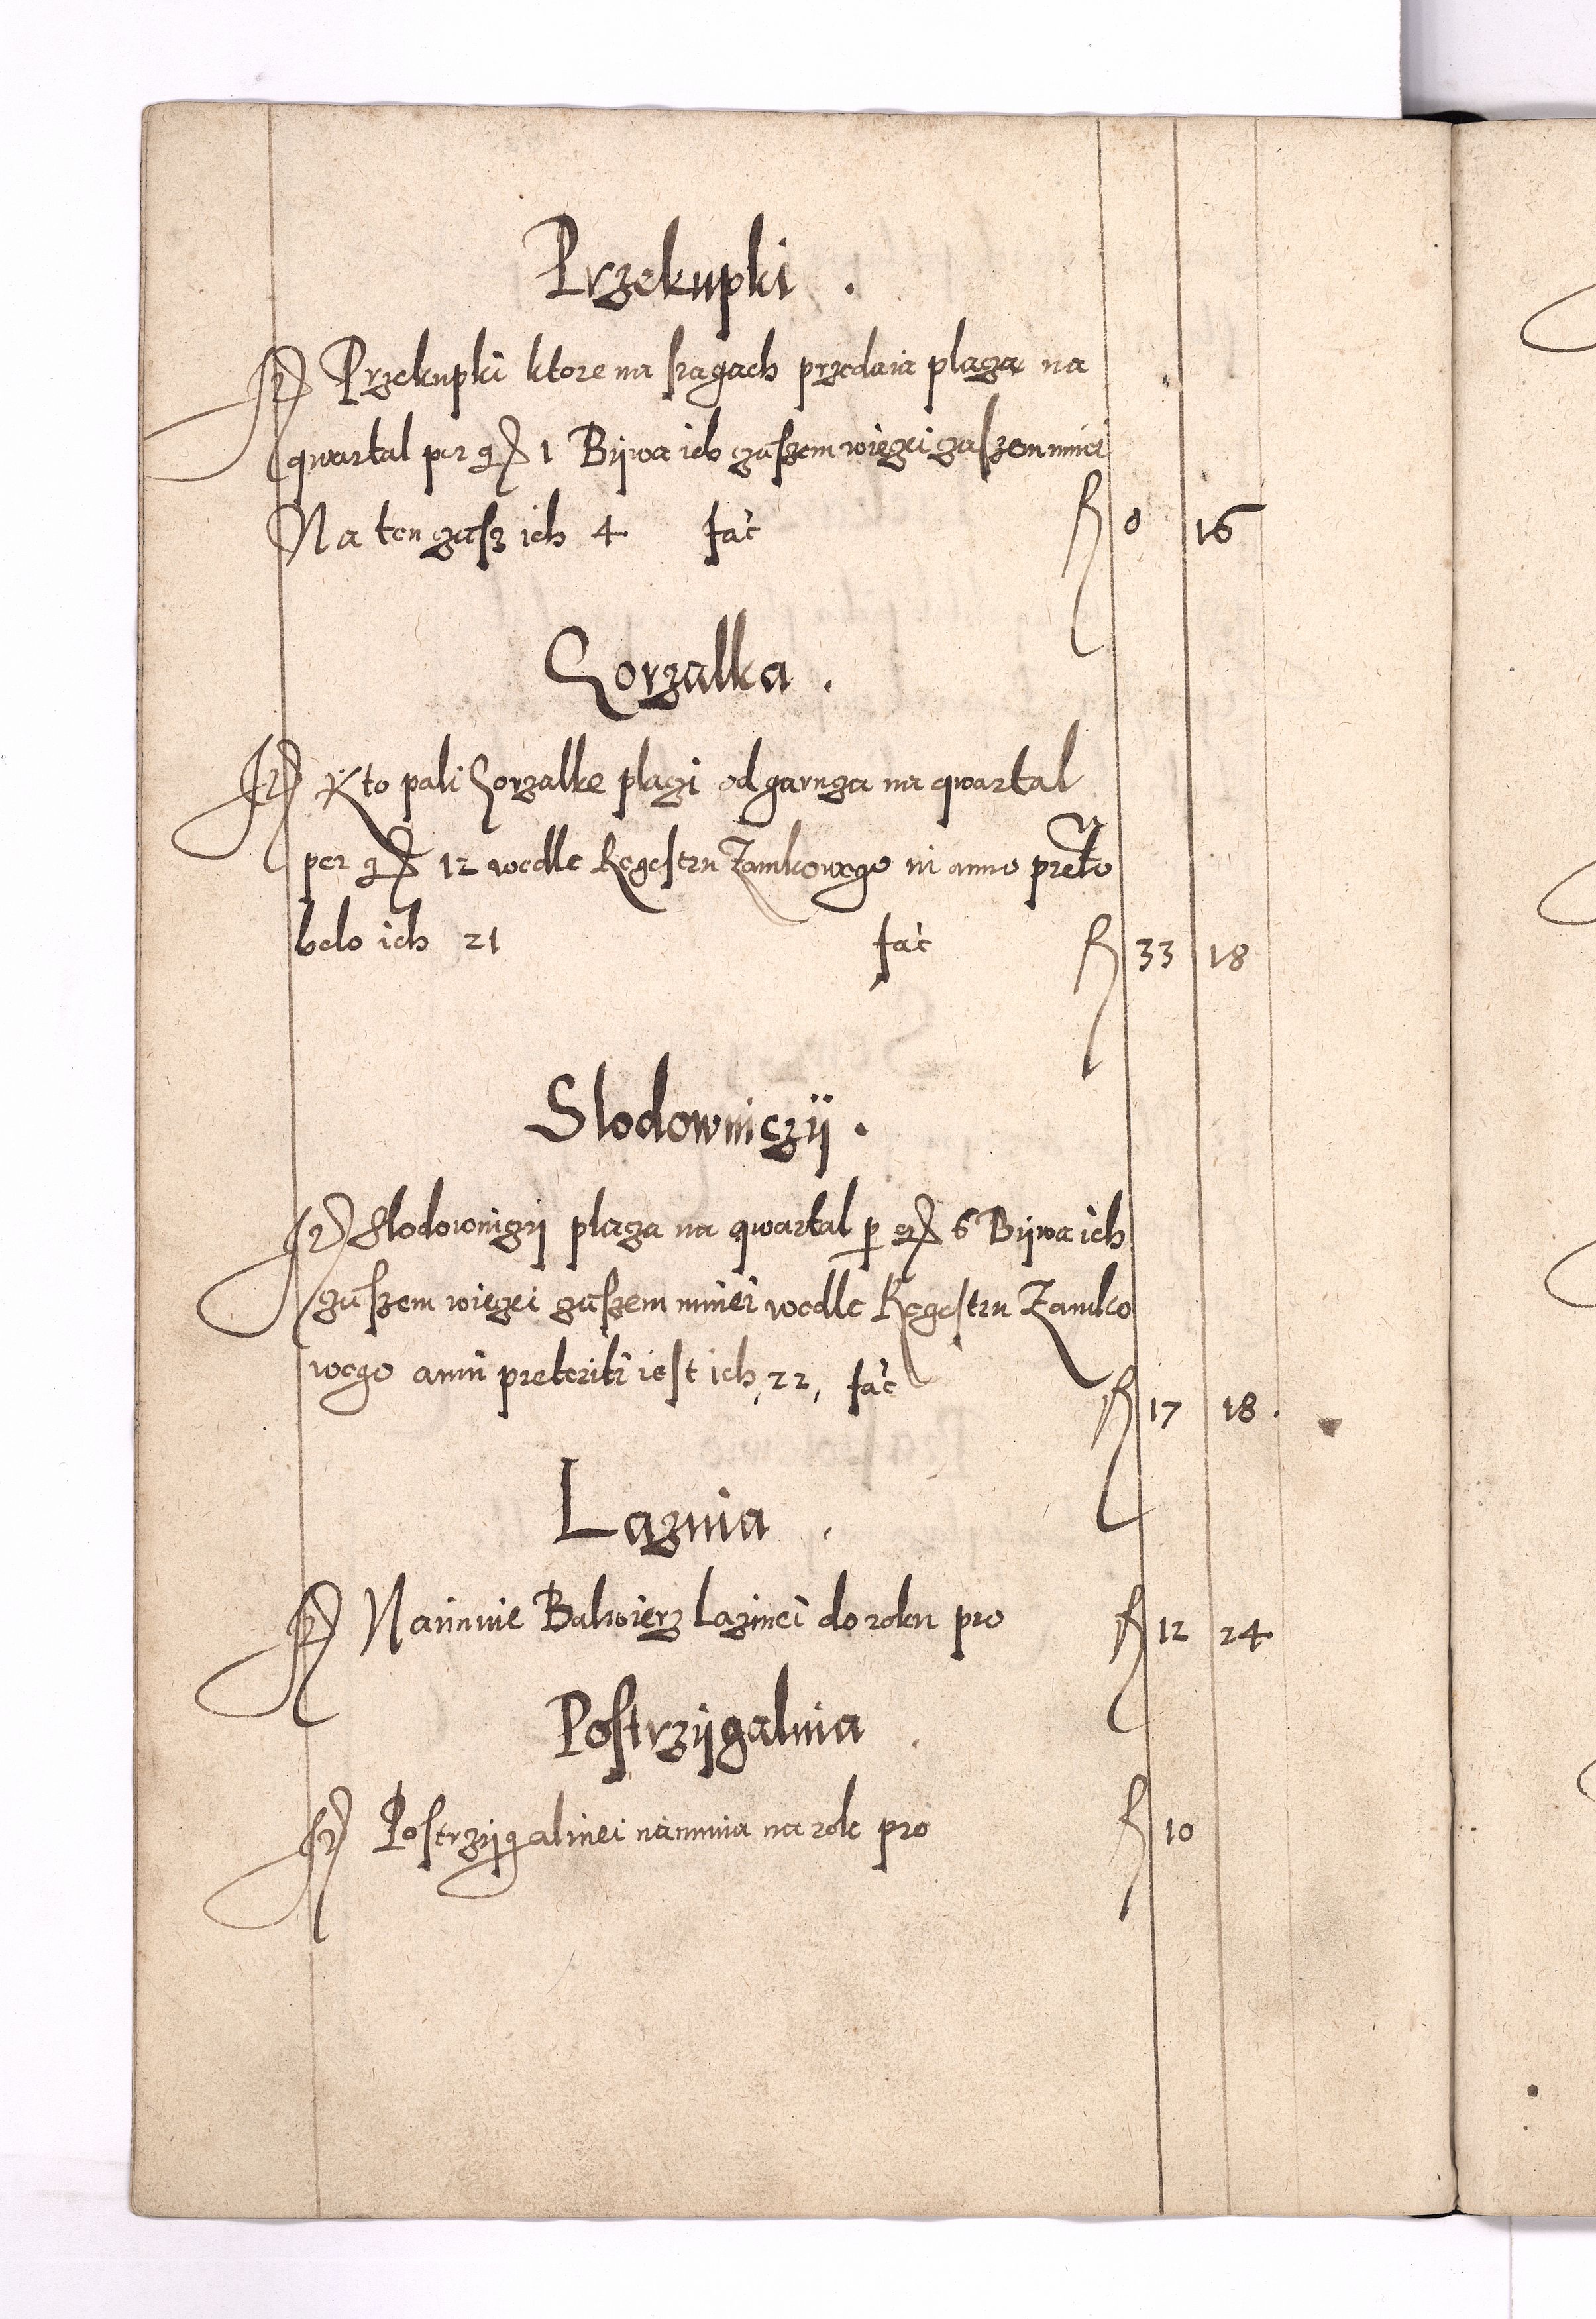 Przekupki .
Jt Przekupki ktore na sragach przedaia placza na
qwartal per gr 1 Bywa ich czaszem wieczei czaszem mniei
Na ten czasz ich 4 fac fl 0 16
Gorzalka .
Jt Kto pali Gorzalke placzi od garncza na qwartal
per gr 12 wedle Regestru Zamkowego in anno preto
belo ich 21 fac fl 33 18
Slodowniczy .
Jt Slodowniczy placza na qwartal p gr 6 Bywa ich
czaszem wieczei czaszem mniei wedle Regestru Zamko
wego anni preteriti iest ich 22, fac fl 17 18 .
Laznia .
Jt Naimuie Balwierz Laznei do roku pro fl 12 24
Postrzygalnia .
Jt Postrzygalnei naimuia na rok pro fl 10